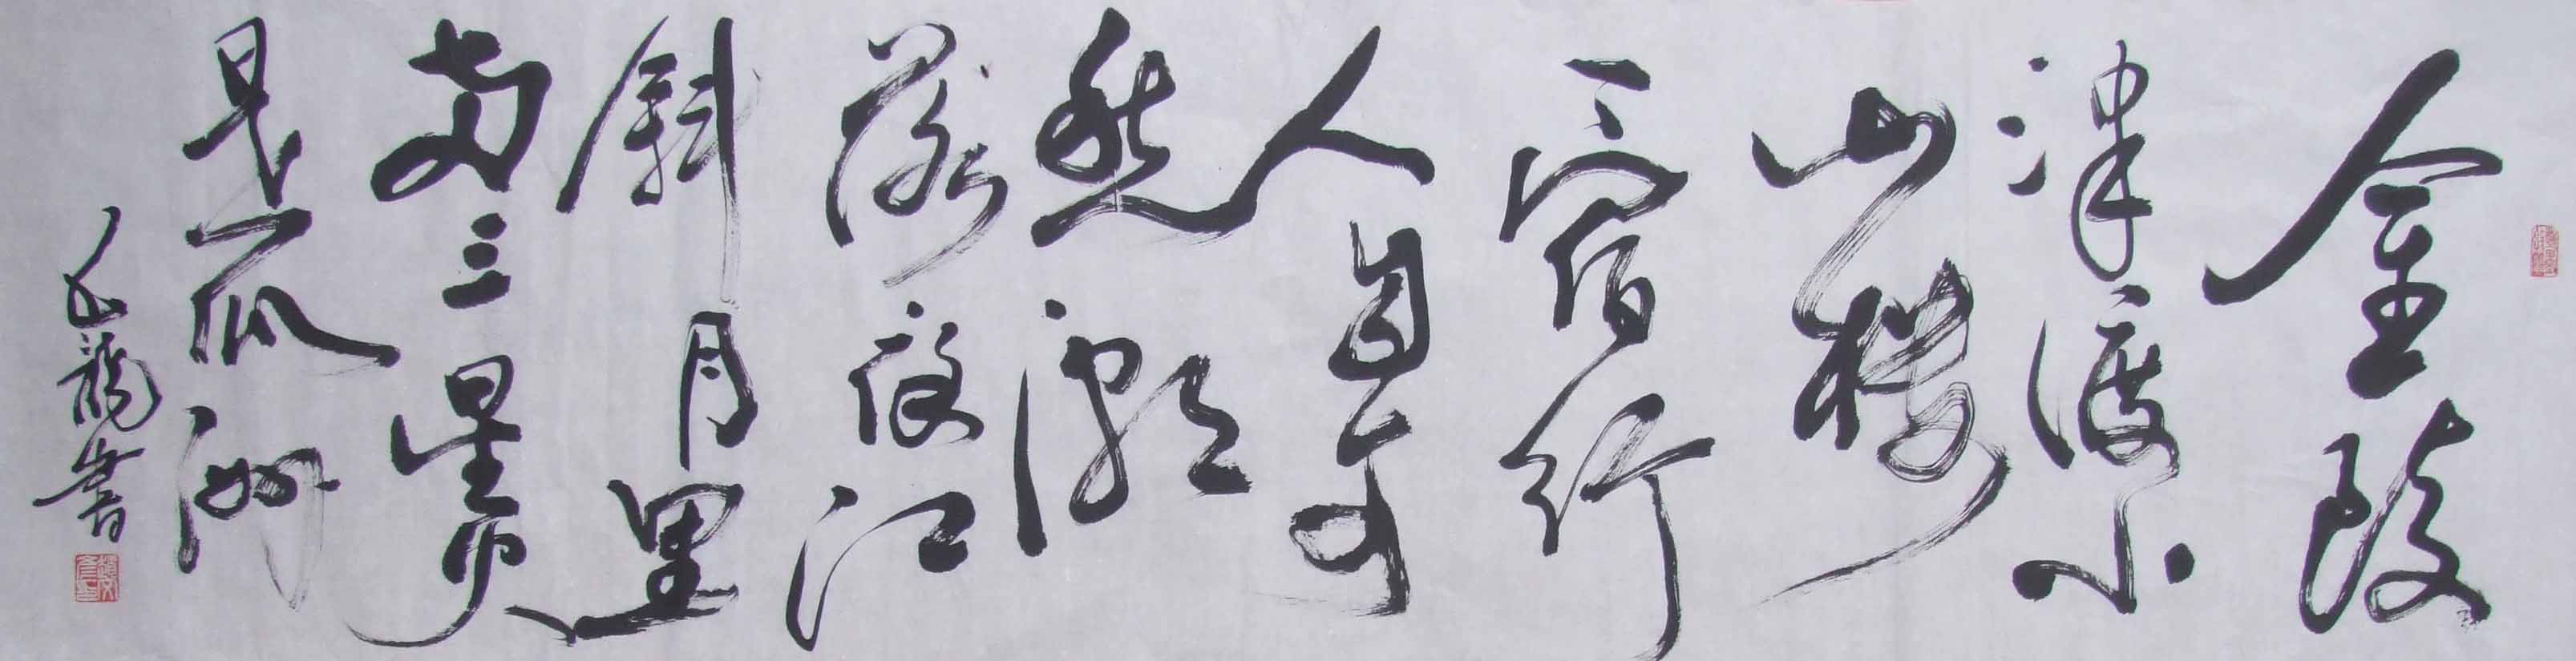 金陵
津渡小
山楼
一宿行
人自可
愁潮
落夜江
斜月里
两三星火
是瓜洲
龍書